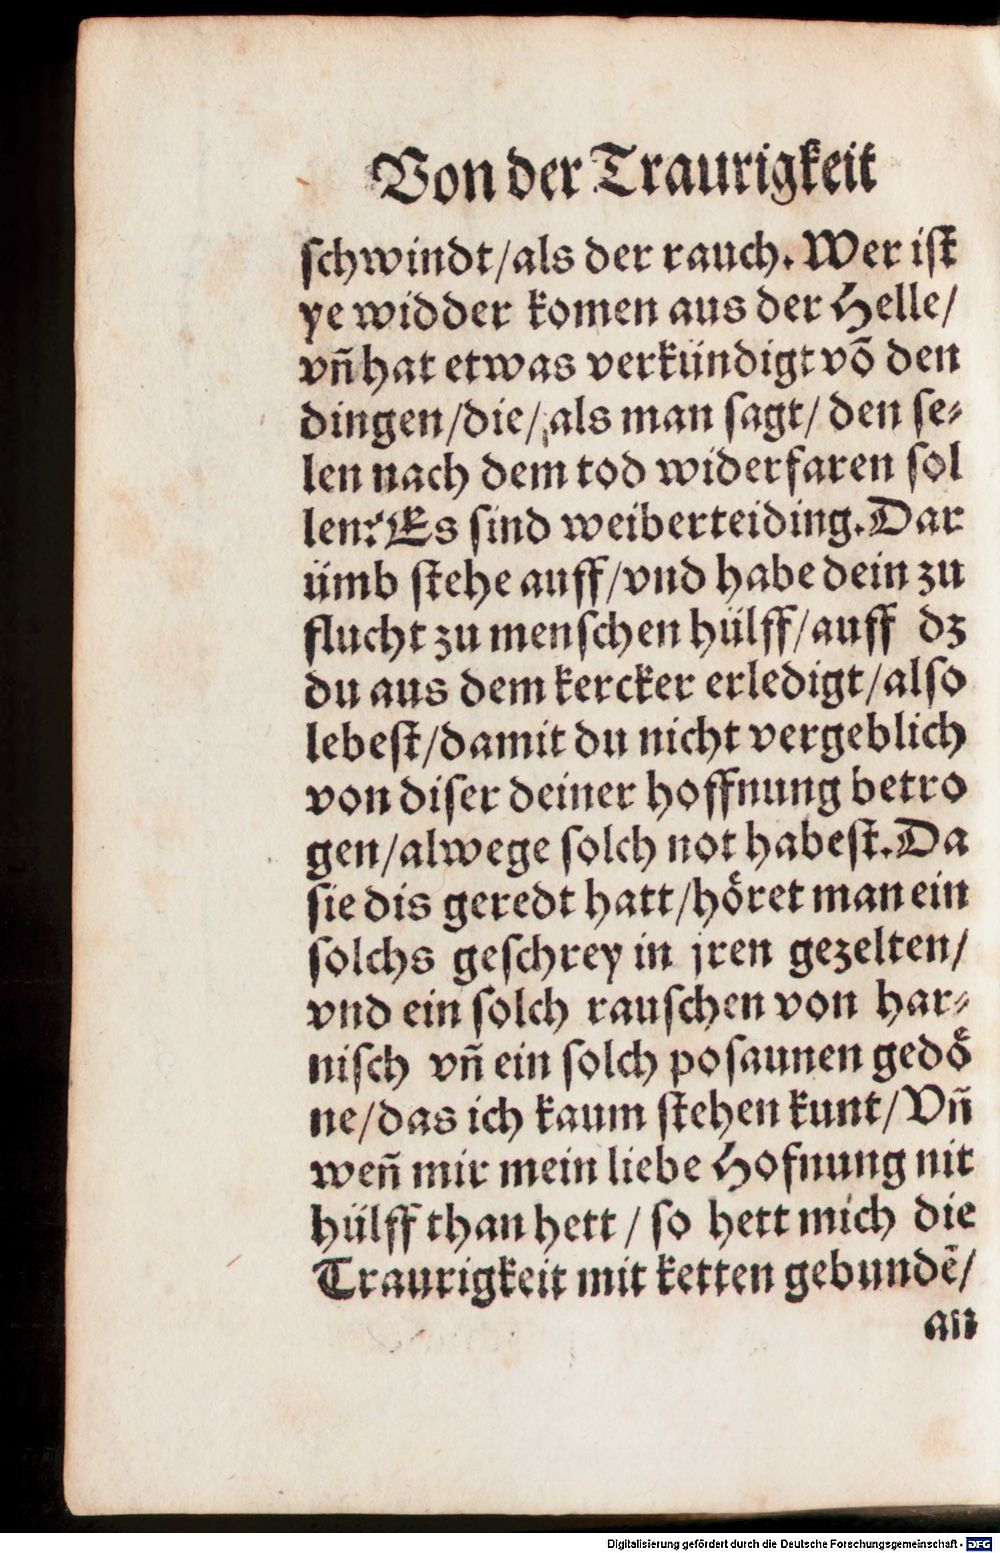 Von der Traurigkeit
ſchwindt/als der rauch. Wer iſt
ye widder komen aus der Helle/
vñ hat etwas verkündigt võ den
dingen/die/als man ſagt/ den ſe⸗
len nach dem tod widerfaren ſol
len? Es ſind weiberteiding. Dar
ümb ſtehe auff/vnd habe dein zu
flucht zu menſchen hülff/auff dz
du aus dem kercker erledigt/alſo
lebeſt/damit du nicht vergeblich
von diſer deiner hoffnung betro
gen/alwege ſolch not habeſt. Da
ſie dis geredt hatt/höret man ein
ſolchs geſchrey in jren gezelten/
vnd ein ſolch rauſchen von har⸗
niſch vñ ein ſolch poſaunen gedoͤ
ne/das ich kaum ſtehen kunt/Vñ
weñ mir mein liebe Hofnung nit
hülff than hett / ſo hett mich die
Traurigkeit mit ketten gebundē/
an
Digitalisierung gefördert durch die Deutsche Forschungsgemeinschaft - DFG